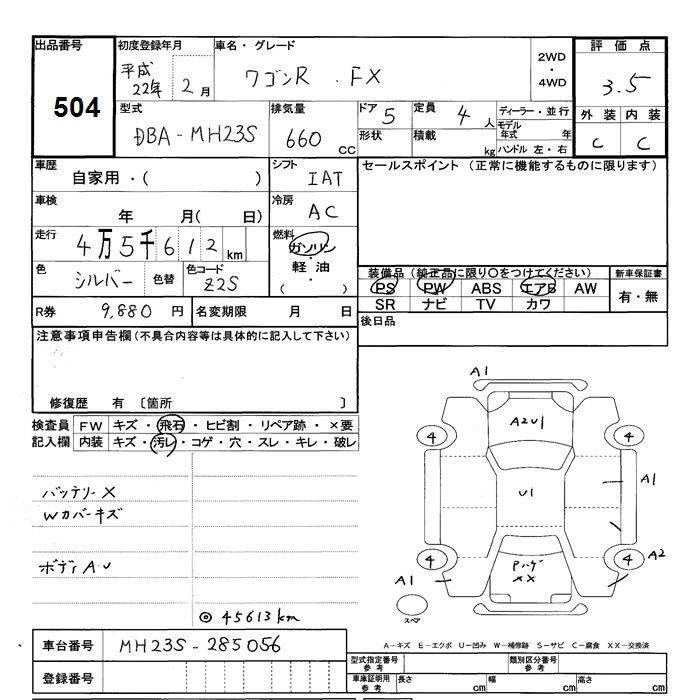 出品番号 初度登録年月 車名・グレード 評価点
504 平成 22年 2月 ワゴンR . FX 2WD ・ 4WD 3.5
型式 DBA-MH23S 排気量 660 CC ドア 5 定員 4人 ディーラー・並行
形状 積載 kg モデル年式 年 ハンドル 左・右
外装 内装
C C
車歴 自家用・( ) シフト IAT セールスポイント (正常に機能するものに限ります)
車検 年 月( 日) 冷房 AC
走行 4万5千612km 燃料 ガソリン ・ 軽・油 ( )
色 シルバー 色替 色コード Z2S
装備品(純正品に限り○をつけてください) 新車保証書
PS PW ABS エアB AW 有・無
SR ナビ TV カワ
R券 9,880 円 名変期限 月 日 後日品
注意事項申告欄(不具合内容等は具体的に記入して下さい)
修復歴 有 〔箇所 〕
検査員 FW キズ・飛石・ヒビ割・リペア跡・×要
記入欄 内装 キズ・汚レ・コゲ・穴・スレ・キレ・破レ
バッテリー×
Wカバーキズ
ボディAU
◎45613km
A1
A2U1
4 4
U1 A1
4 4 A2
Pハゲ
XX
A1
スペア
A-キズ E-エクボ U-凹み W-補修跡 S-サビ C-腐食 XX-交換済
車台番号 MH23S-285056
登録番号
型式指定番号 参考 類別区分番号 参考
車庫証明用 参考 長さ cm 幅 cm 高さ cm